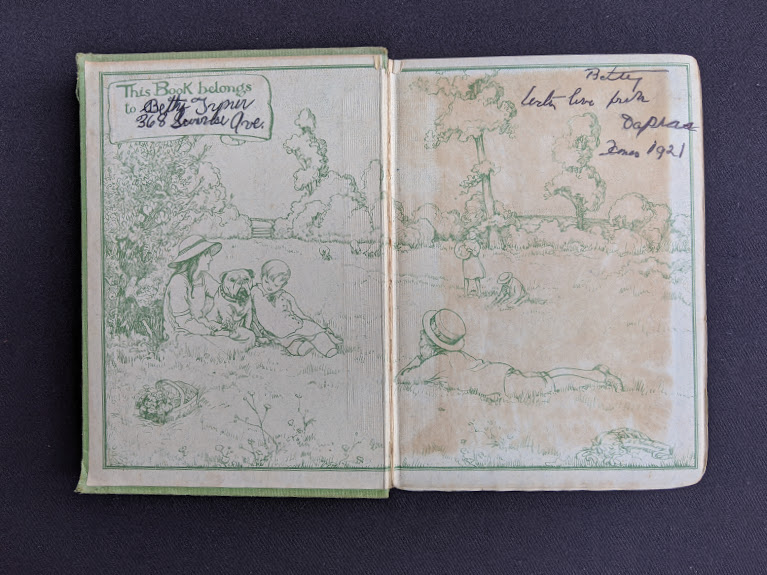 This Book belongs
to Betty
368 Ave.
Betty
with love from
Daphne
Xmas 1921